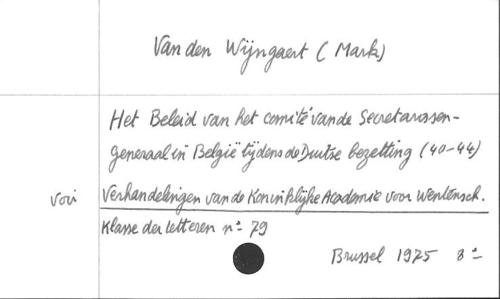 Van den Wijngaert (Mark)
Het Beleid van het comité van de Secretarissen-
generaal in België tijdens de Duitse bezetting (40-44)
voir Verhandelingen van de Koninklijke Academie voor Wentensch.
Klasse der letteren n° 79
Brussel 1975 8°